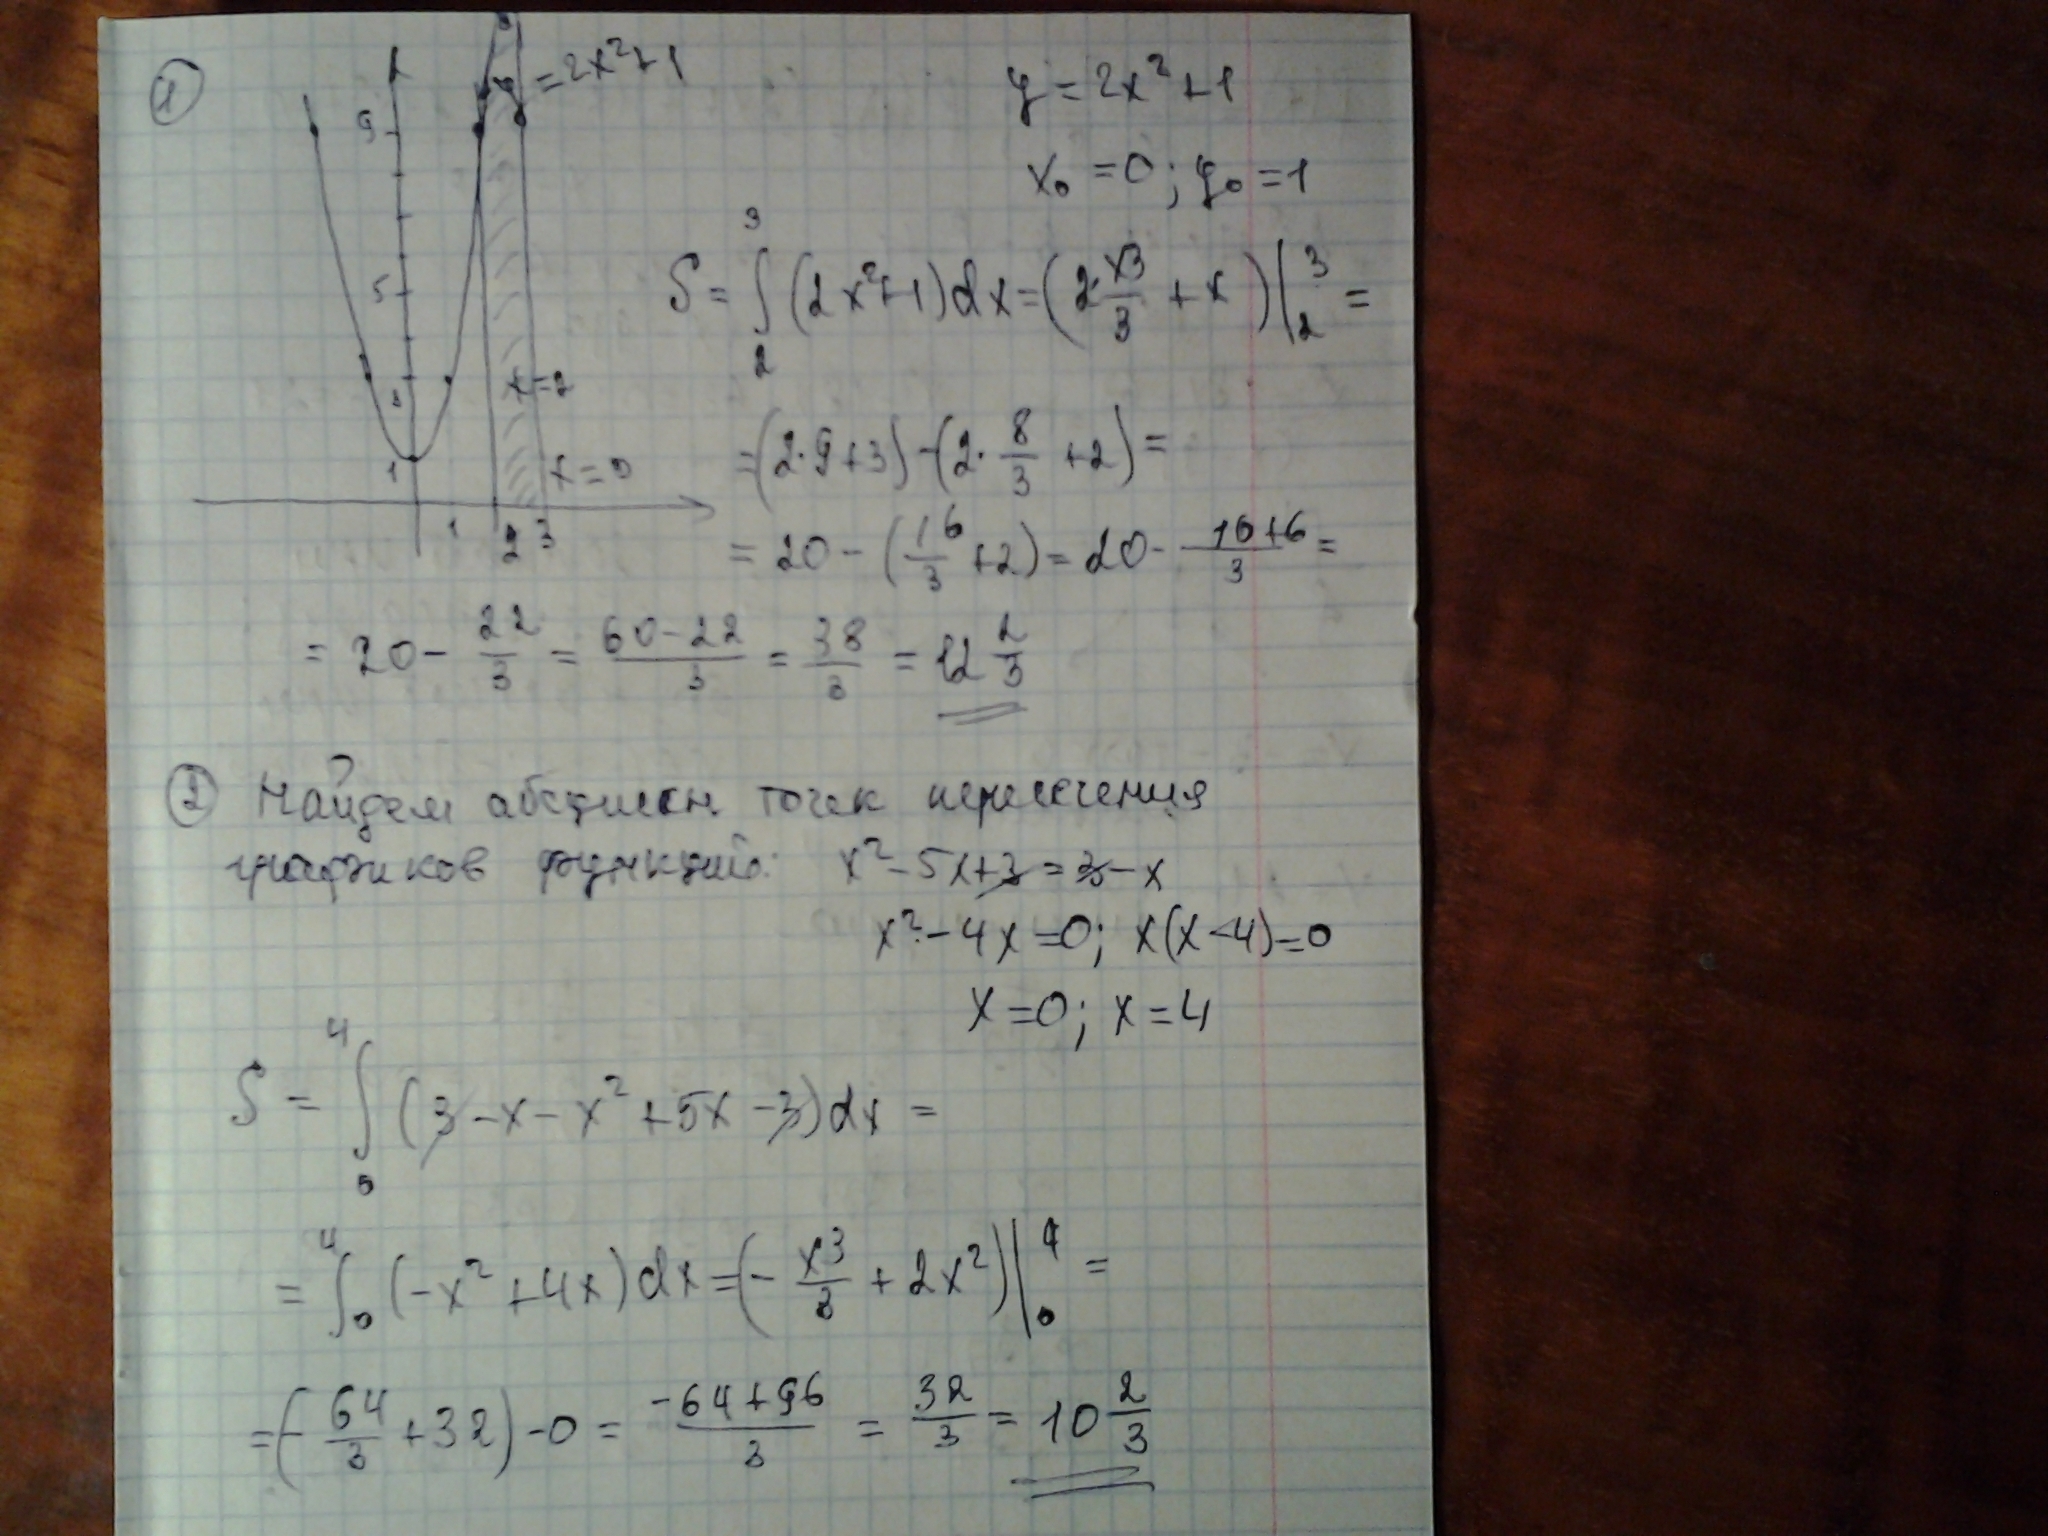 ①
y = 2x² + 1
9
5
1
1 2 3
x = 2
= 2x² + 1
x₀ = 0; y₀ = 1
S = ∫₂³ (2x² + 1) dx = (2·x³/3 + x) |₂³ =
= (2·9 + 3) − (2·8/3 + 2) =
= 20 − (16/3 + 2) = 20 − (16 + 6)/3 =
= 20 − 22/3 = (60 − 22)/3 = 38/3 = 12 2/3
② Найдем абсциссы точек пересечения
графиков функций: x² − 5x + 3 = 3 − x
x² − 4x = 0; x(x − 4) = 0
x = 0; x = 4
S = ∫₀⁴ (3 − x − x² + 5x − 3) dx =
= ∫₀⁴ (−x² + 4x) dx = (−x³/3 + 2x²) |₀⁴ =
= (−64/3 + 32) − 0 = (−64 + 96)/3 = 32/3 = 10 2/3